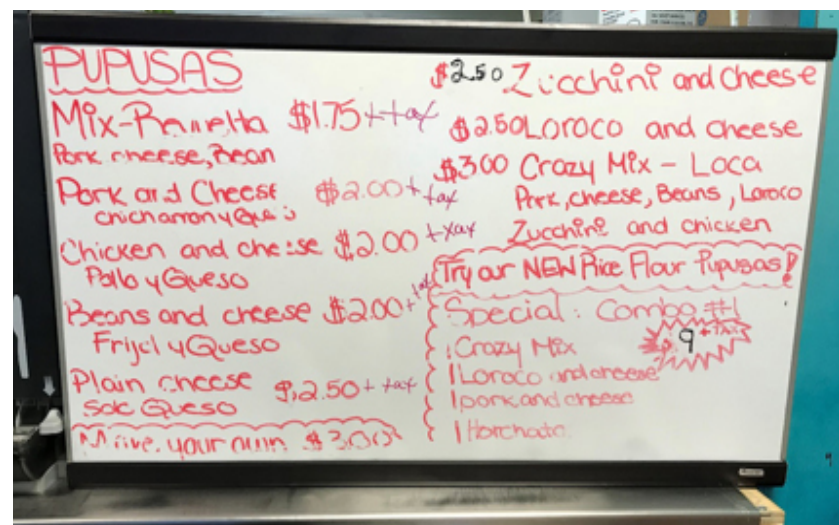 PUPUSAS
Mix-Revuelta $1.75 + tax
Pork cheese, Bean
Pork and Cheese $2.00 + tax
chicharron y Queso
Chicken and cheese $2.00 + tax
Pollo y Queso
Beans and cheese $2.00 + tax
Frijol y Queso
Plain cheese $2.50 + tax
Solo Queso
your own $3.00
$2.50 Zucchini and cheese
$2.50 Loroco and cheese
$3.00 Crazy Mix - Loca
Pork, cheese, Beans, Laroco
Zucchini and chicken
Try our NEW Rice Flour Pupusas!
Special: Combo #1
9 + tax
1 Crazy Mix
1 Loroco and cheese
1 pork and cheese
1 Horchata